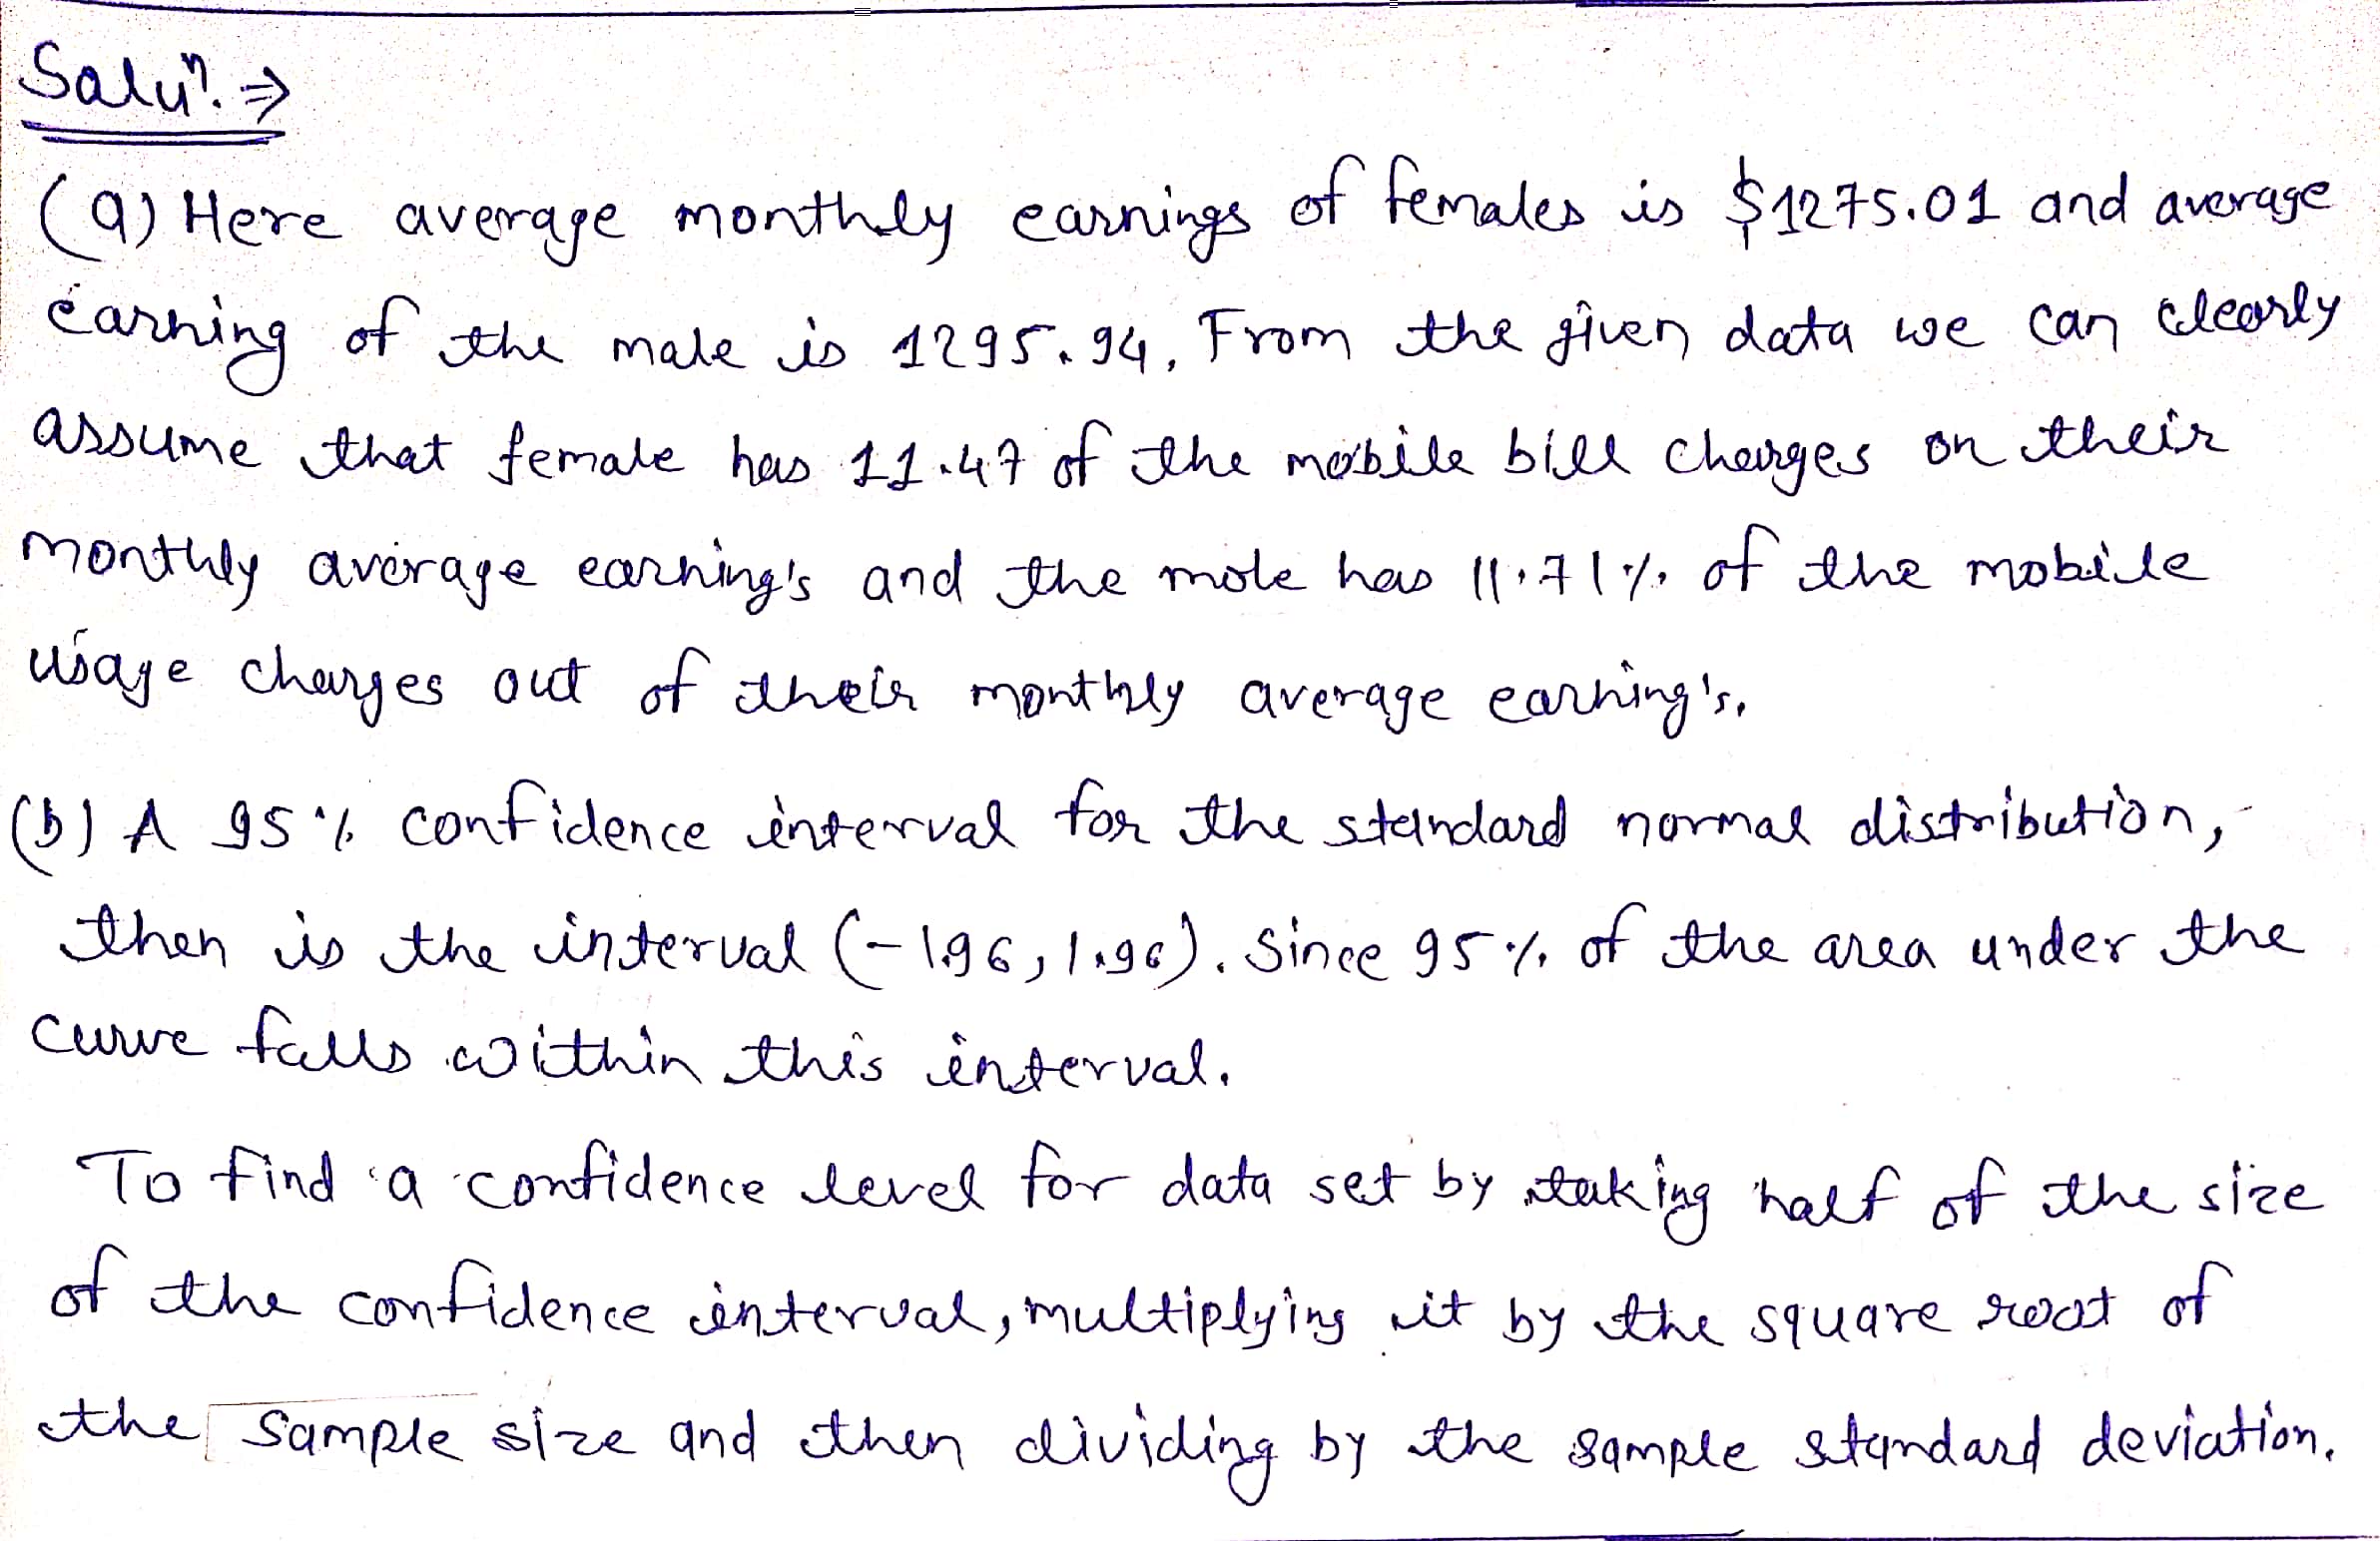 Saluⁿ. ⇒
(a) Here average monthly earnings of females is $1275.01 and average
earning of the male is 1295.94, From the given data we can clearly
assume that female has 11.47 of the mobile bill charges on their
monthly average earning's and the male has 11.71% of the mobile
usage charges out of their monthly average earning's.
(b) A 95% confidence interval for the standard normal distribution,
then is the interval (-1.96, 1.96). Since 95%. of the area under the
curve falls within this interval.
To find a confidence level for data set by taking half of the size
of the confidence interval, multiplying it by the square root of
the sample size and then dividing by the sample standard deviation.